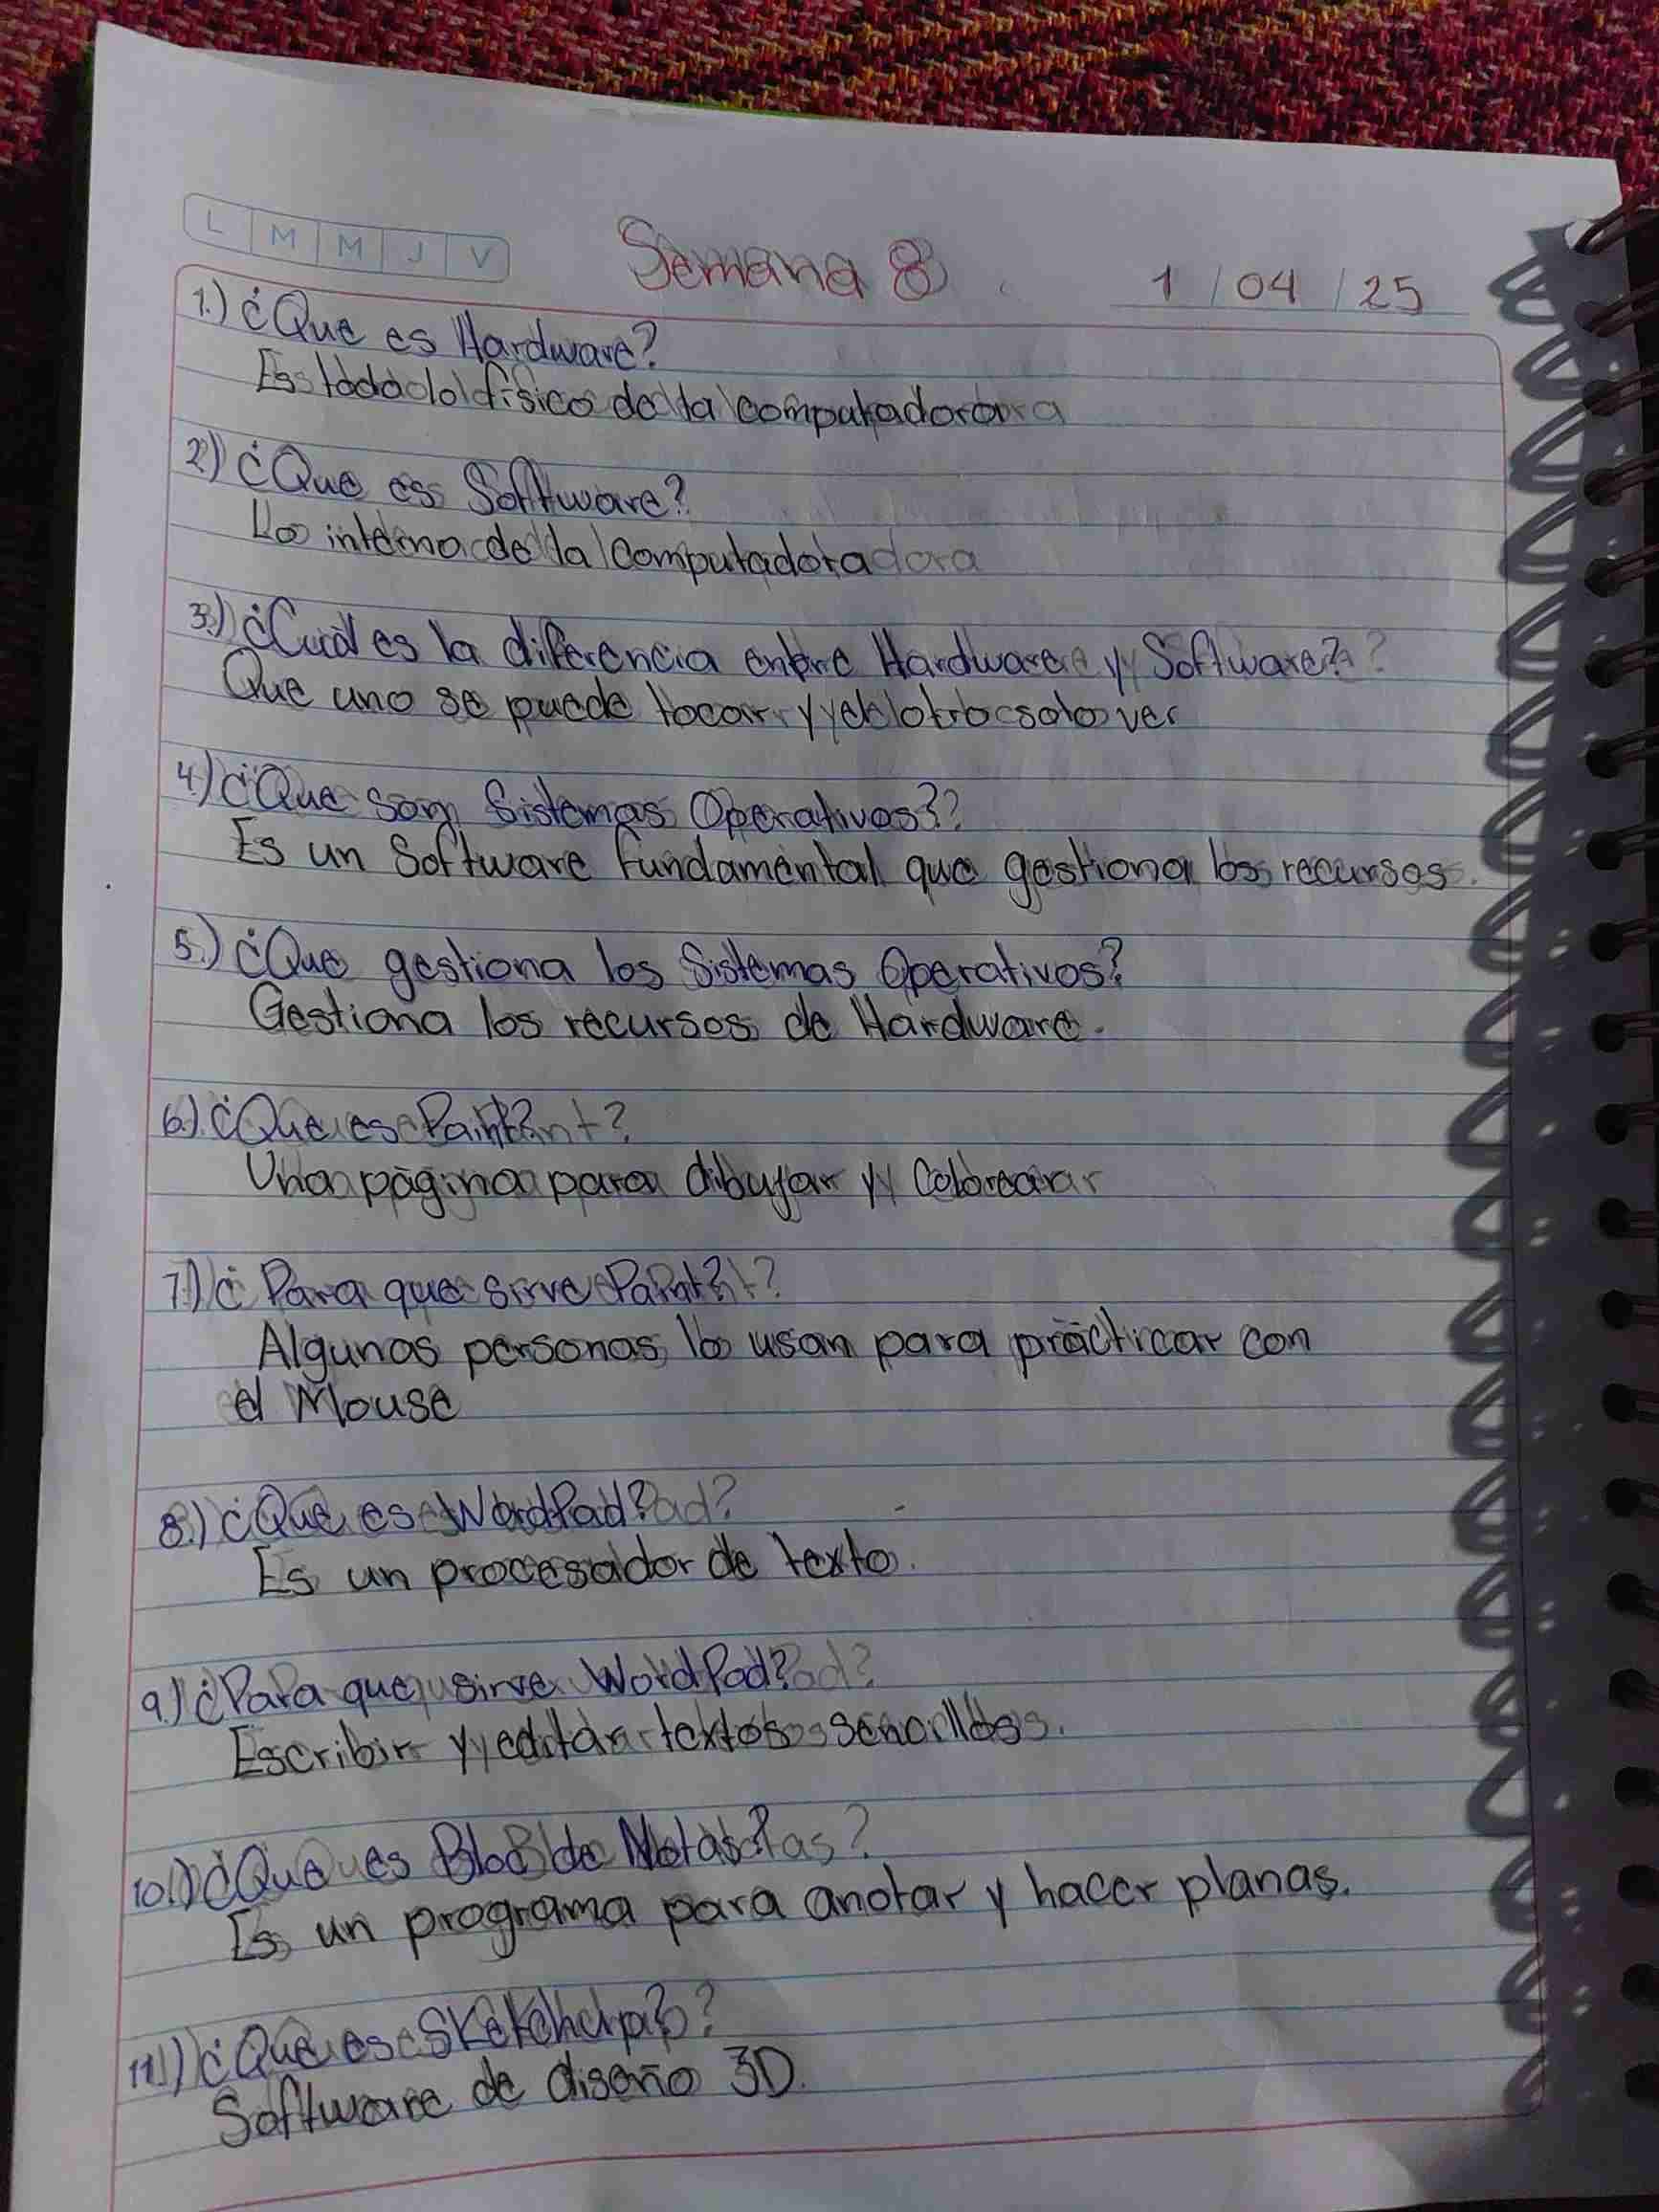 L M M J V
Semana 8
1 / 04 / 25
1.) ¿Que es Hardware?
Es todo lo físico de la computadora
2) ¿Que es Software?
Lo interno de la Computadora
3.) ¿Cuál es la diferencia entre Hardware y Software?
Que uno se puede tocar y el otro solo ver
4.) ¿Que son Sistemas Operativos?
Es un Software fundamental que gestiona los recursos.
5.) ¿Que gestiona los Sistemas Operativos?
Gestiona los recursos de Hardware.
6.) ¿Que es Paint?
Una página para dibujar y Colorear
7.) ¿Para que sirve Paint?
Algunas personas lo usan para prácticar con
el Mouse
8.) ¿Que es WordPad?
Es un procesador de texto.
9.) ¿Para que sirve WordPad?
Escribir y editar textos sencillos.
10.) ¿Que es Bloc de Notas?
Es un programa para anotar y hacer planas.
11.) ¿Que es Sketchup?
Software de diseño 3D.